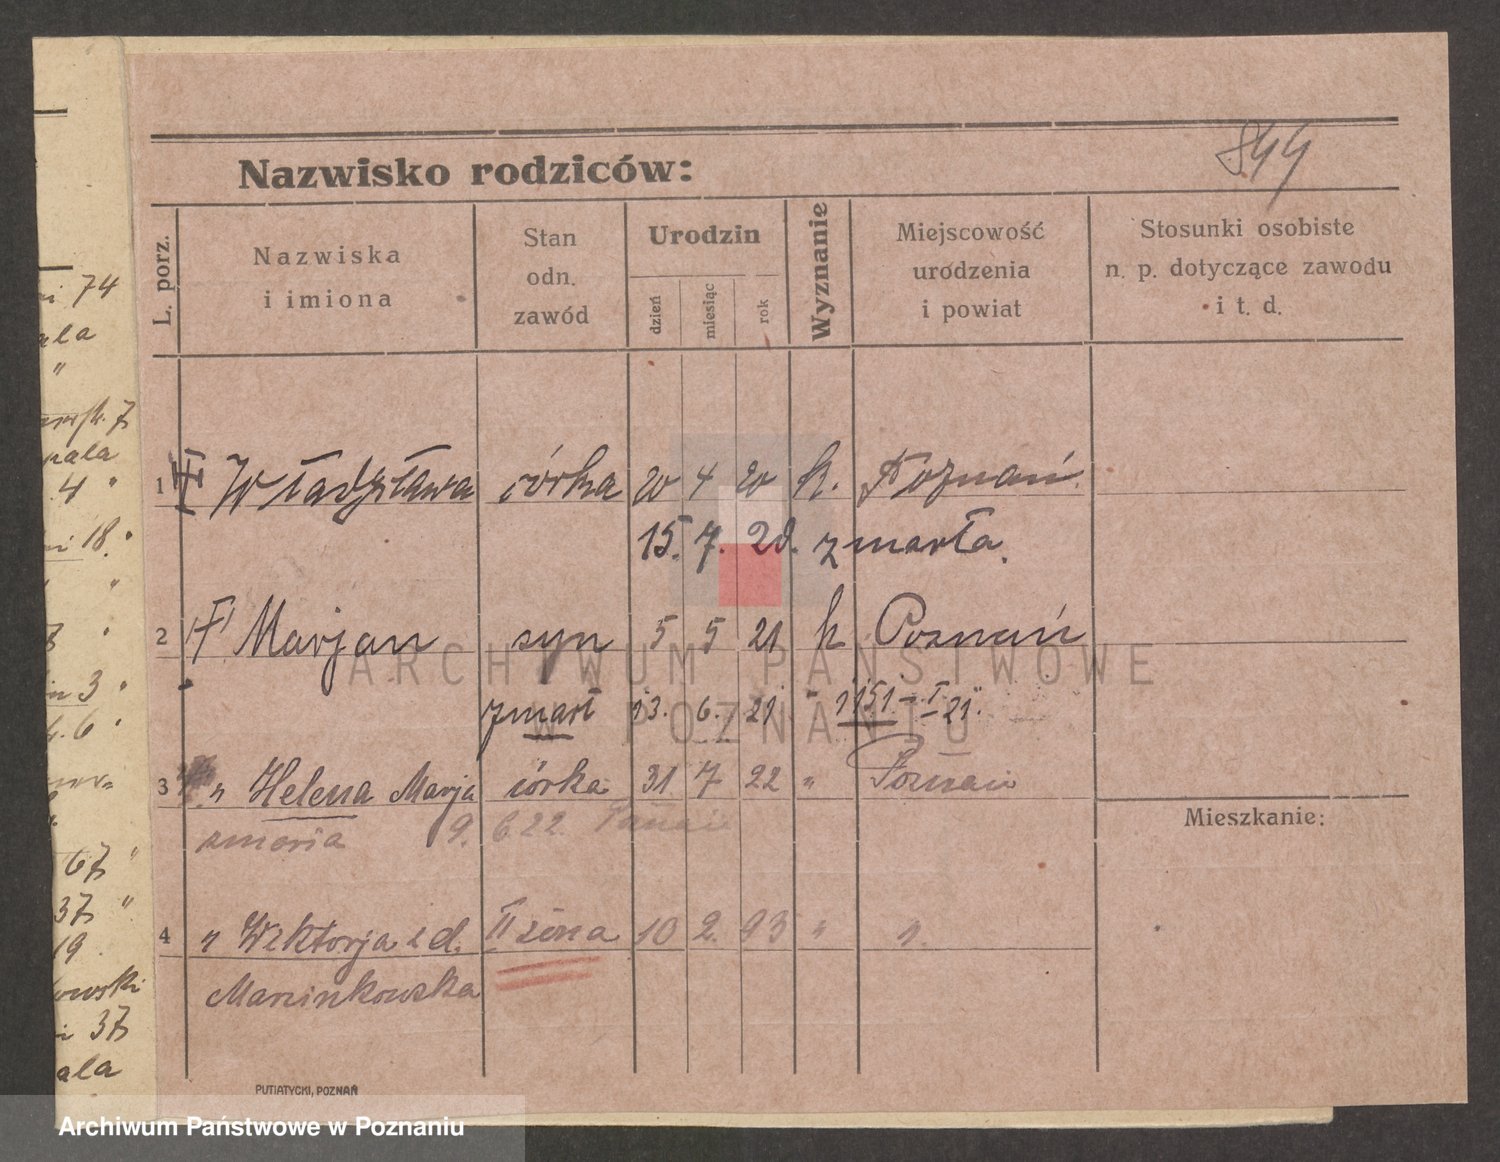 844
Nazwisko rodziców:
L. porz.
Nazwiska
i imiona
Stan
odn.
zawód
Urodzin
dzień
miesiąc
rok
Wyznanie
Miejscowość
urodzenia
i powiat
Stosunki osobiste
n. p. dotyczące zawodu
i t. d.
1 Władysława córka 20 4 20 k. Poznań.
15. 7. 20. zmarła.
2 Marjan syn 5 5 21 k Poznań
zmarł 13. 6. 21 " 1151 - I - 21.
3 " Helena Marja córka 31 7 22 " Poznań
9. 22.
Mieszkanie:
4 " Wiktorja z d. II żona 10 2. 93 " "
Marcinkowska
PUTIATYCKI, POZNAŃ
74
ala
"
7
pala
4 "
18.
"
3
6
67 "
37 "
19
owski
37
ala
ARCHIWUM PAŃSTWOWE
W POZNANIU
Archiwum Państwowe w Poznaniu